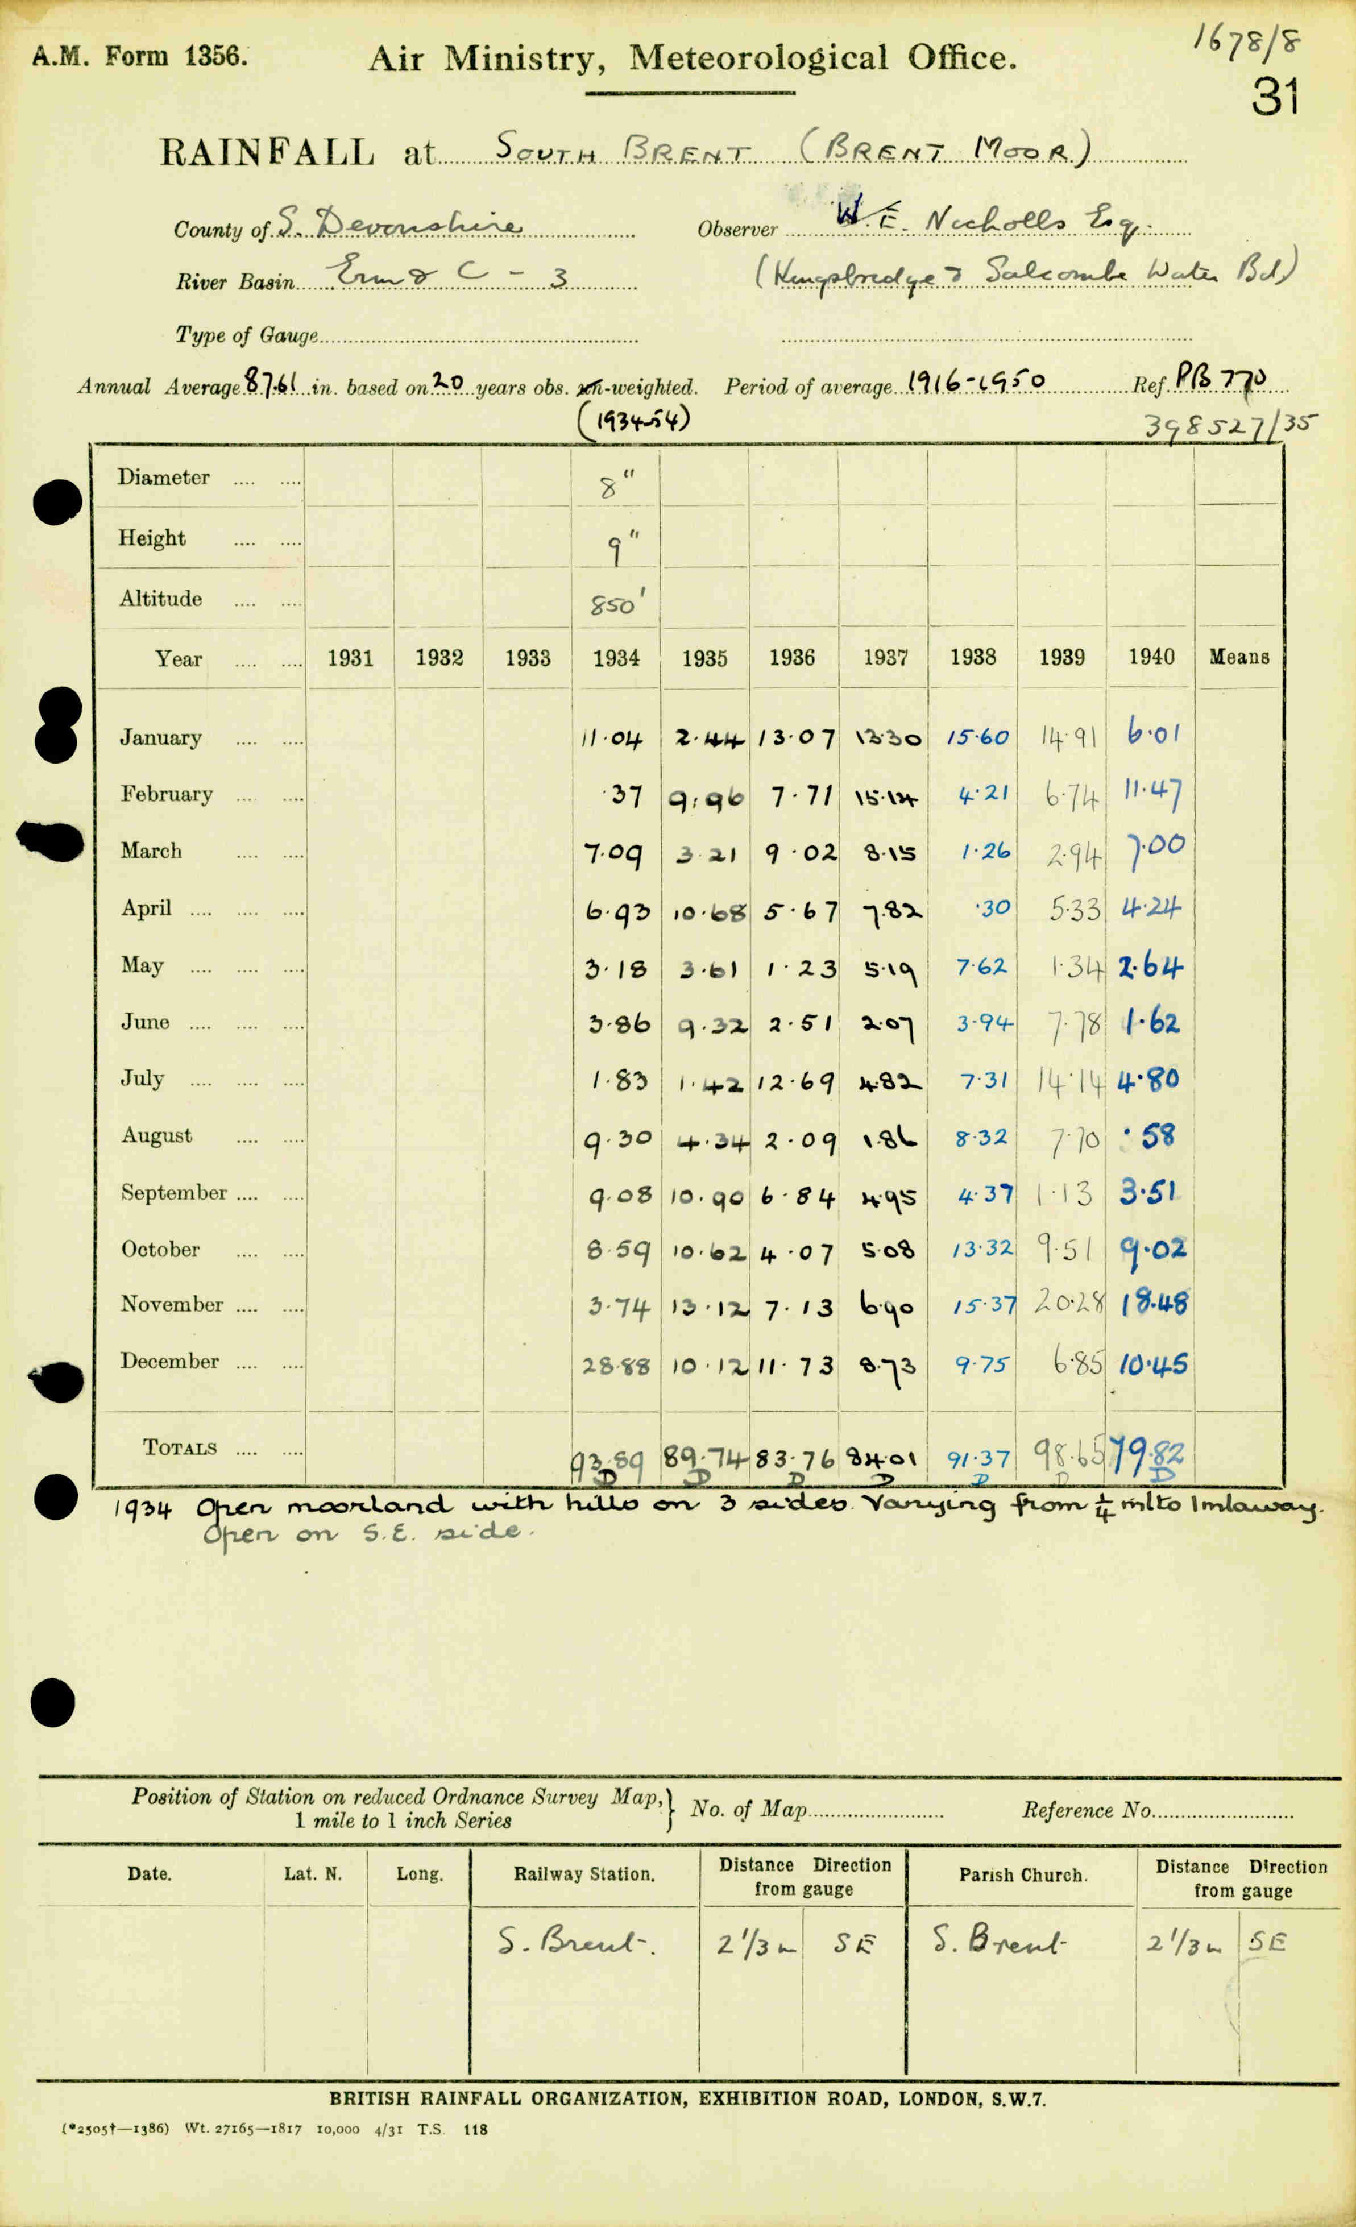 1678/8
A.M. Form 1356. Air Ministry, Meteorological Office.
31
RAINFALL at SOUTH BRENT (BRENT MOOR)
County of S. Devonshire Observer W.E. Nicholls Esq.
River Basin Erm & C - 3 (Kingsbridge & Salcombe Water Bd)
Type of Gauge
Annual Average 87.61 in. based on 20 years obs. un-weighted. Period of average 1916-1950 Ref. PB 770
(1934-54) 398527/35
Diameter .... .... 8"
Height .... .... 9"
Altitude .... .... 850'
Year .... .... 1931 1932 1933 1934 1935 1936 1937 1938 1939 1940 Means
January .... .... 11.04 2.44 13.07 13.30 15.60 14.91 6.01
February .... .... .37 9.96 7.71 15.14 4.21 6.74 11.47
March .... .... 7.09 3.21 9.02 8.15 1.26 2.94 7.00
April .... .... .... 6.93 10.68 5.67 7.82 .30 5.33 4.24
May .... .... .... 3.18 3.61 1.23 5.19 7.62 1.34 2.64
June .... .... .... 3.86 9.32 2.51 2.07 3.94 7.78 1.62
July .... .... .... 1.83 1.42 12.69 4.82 7.31 14.14 4.80
August .... .... 9.30 4.34 2.09 1.86 8.32 7.70 .58
September .... .... 9.08 10.90 6.84 4.95 4.37 1.13 3.51
October .... .... 8.59 10.62 4.07 5.08 13.32 9.51 9.02
November .... .... 3.74 13.12 7.13 6.90 15.37 20.28 18.48
December .... .... 28.88 10.12 11.73 8.73 9.75 6.85 10.45
TOTALS .... .... 93.89 89.74 83.76 84.01 91.37 98.65 79.82
D D D D D D D
1934 Open moorland with hills on 3 sides. Varying from 1/4 ml to 1 ml away.
Open on S.E. side.
Position of Station on reduced Ordnance Survey Map,} No. of Map Reference No.
1 mile to 1 inch Series
Date. Lat. N. Long. Railway Station. Distance Direction from gauge Parish Church. Distance Direction from gauge
S. Brent. 2 1/3 m SE S. Brent 2 1/3 m SE
BRITISH RAINFALL ORGANIZATION, EXHIBITION ROAD, LONDON, S.W.7.
(*2505†—1386) Wt. 27165—1817 10,000 4/31 T.S. 118